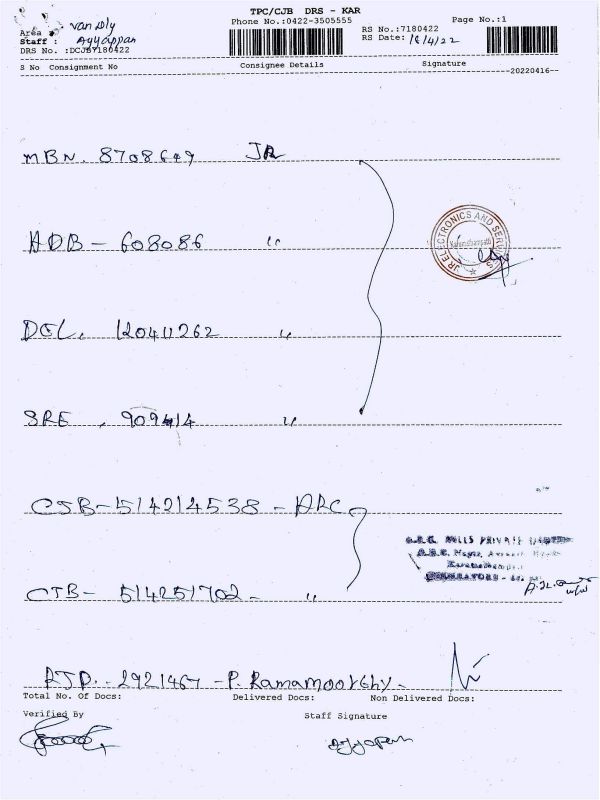 TPC/CJB DRS - KAR
Phone No.:0422-3505555
Page No.:1
Area : van Dly
Staff : Ayyappan
DRS No. :DCJB7180422
RS No.:7180422
RS Date: 18/4/22
S No Consignment No Consignee Details Signature
20220416
MBN. 8708649 JR
ADB - 608086 "
DEL. 120411262 "
SRE . 909414 "
JR ELECTRONICS AND SERVICES
CJB - 514214538 - ARC
CJB - 514251702 - "
MILLS PRIVATE LIMITED
RJP. - 2921467 - P. Ramamoorthy.
Total No. Of Docs: Delivered Docs: Non Delivered Docs:
Verified By Staff Signature
Ayyapan